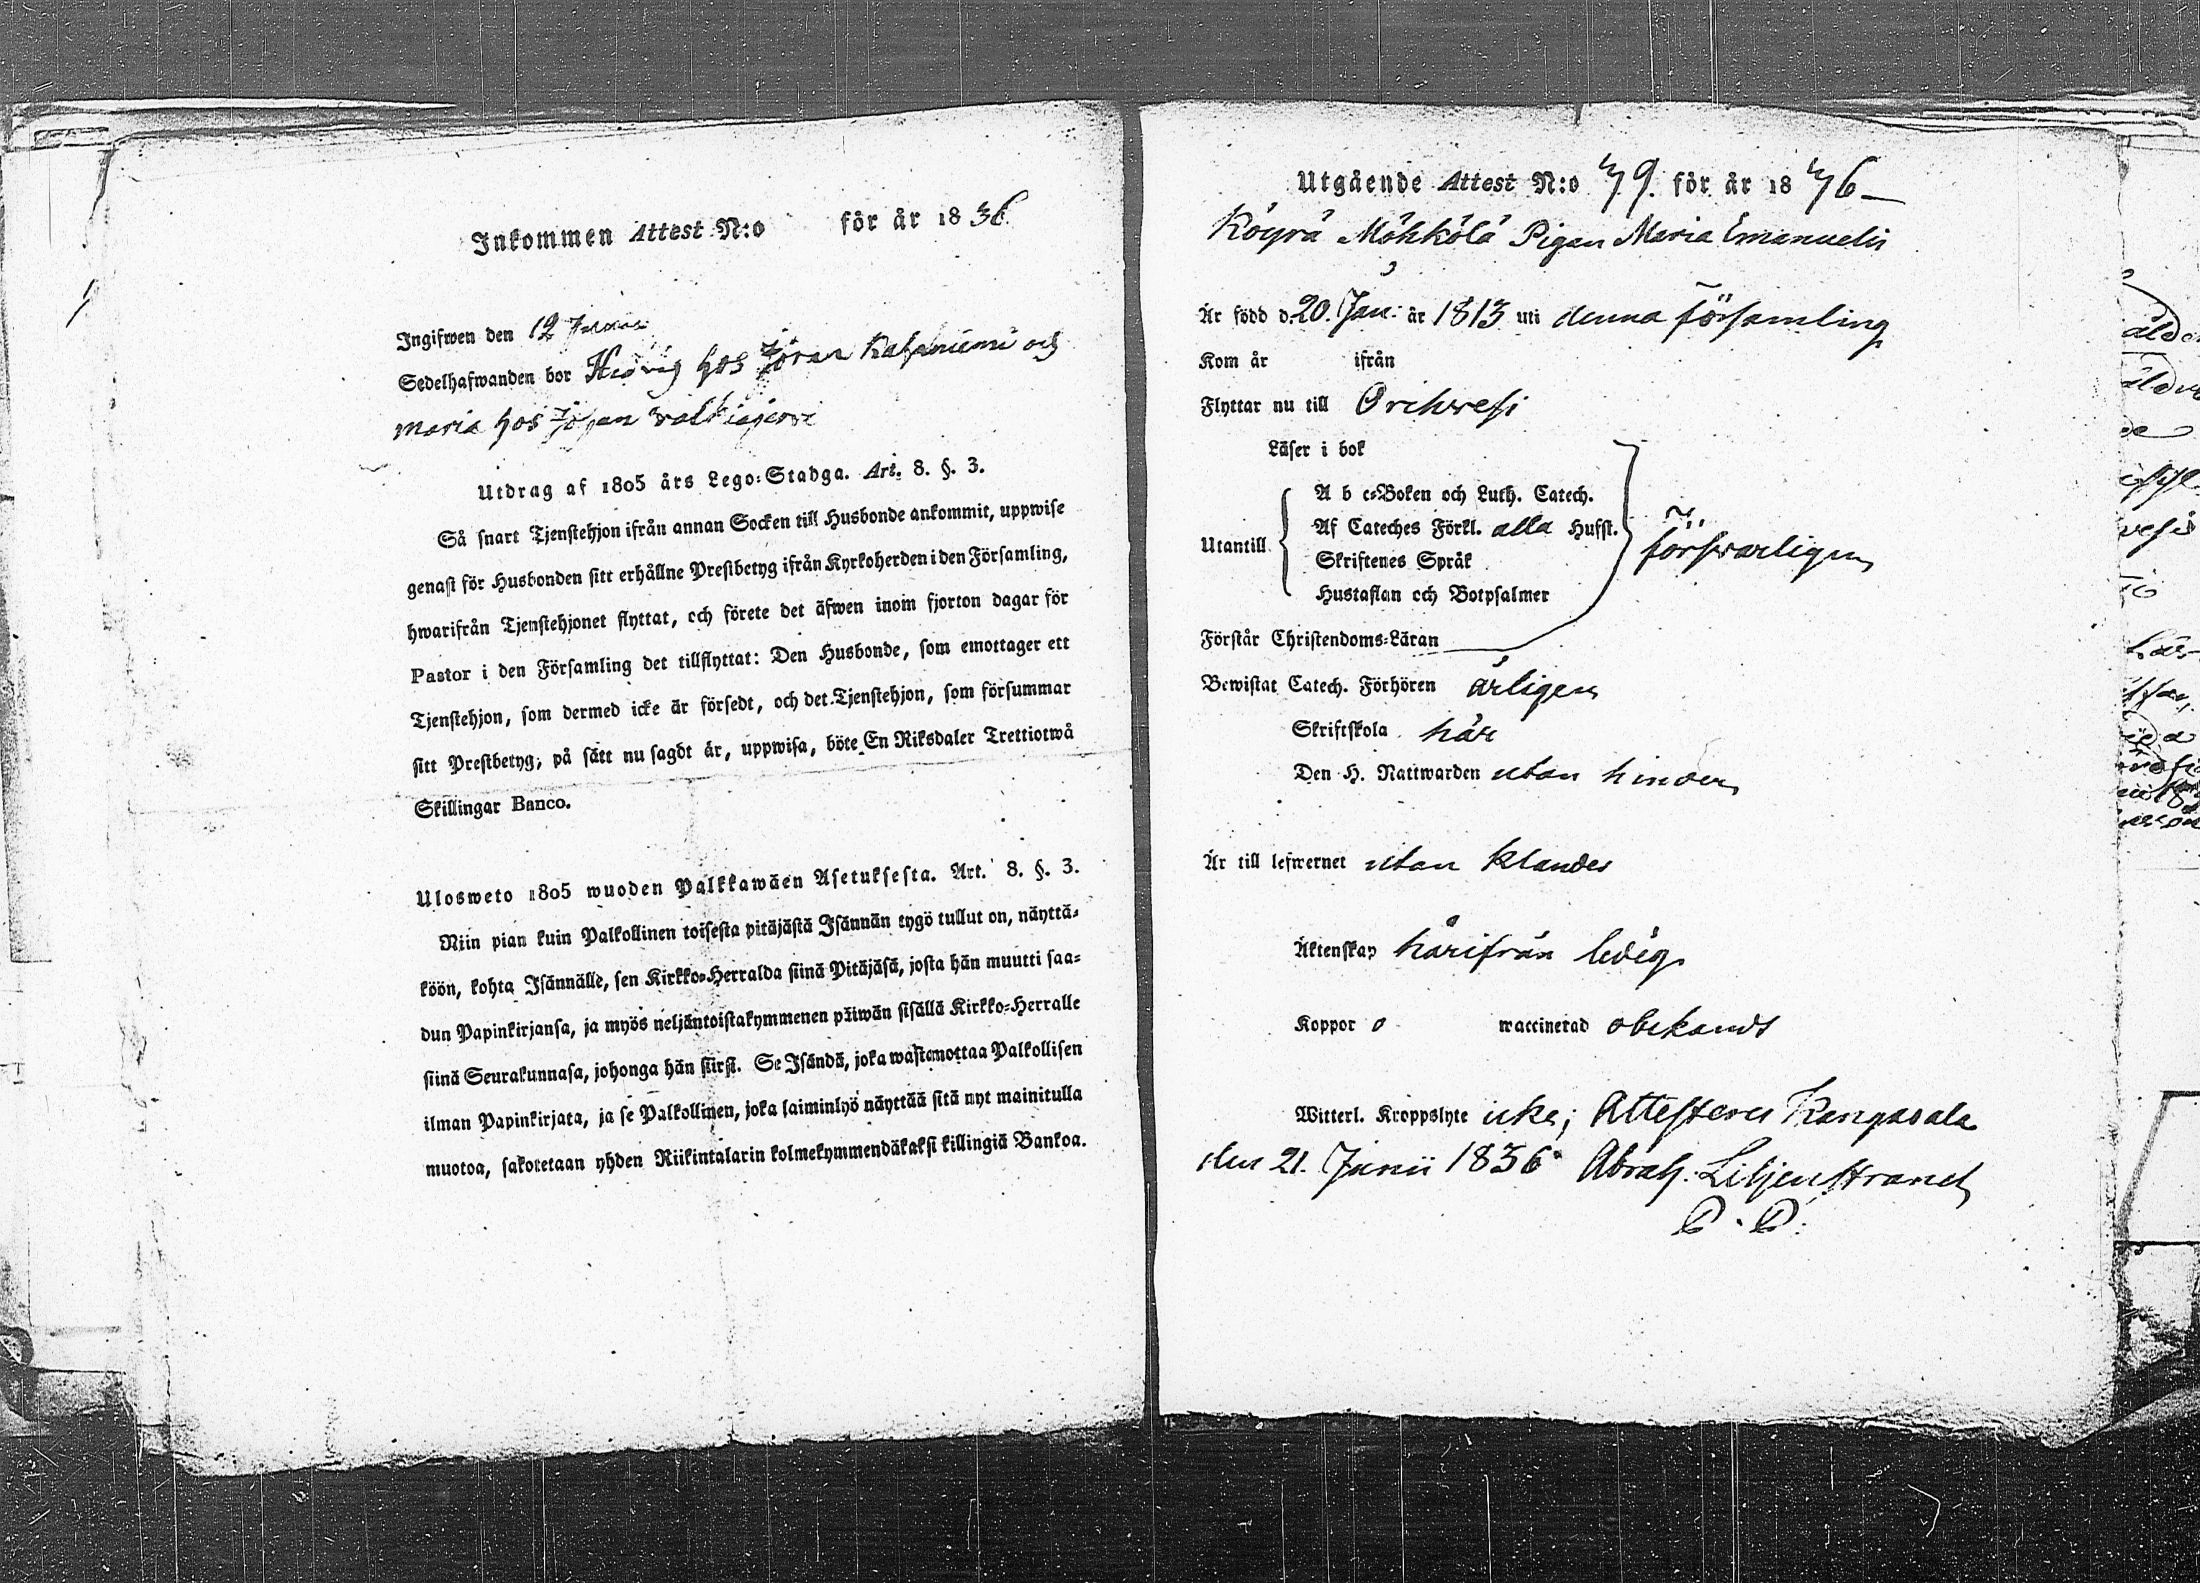 Inkommen Attest N:o för år 1836
Ingifwen den 12
Sedelhafwanden bor Hedvig hos Jöran och
Maria hos Johan
Utdrag af 1805 års Lego-Stadga. Art. 8. §. 3.
Så snart Tjenstehjon ifrån annan Socken till Husbonde ankommit, uppwise
genast för Husbonden sitt erhållne Prestbetyg ifrån Kyrkoherden i den Församling,
hwarifrån Tjenstehjonet flyttat, och förete det äfwen inom fjorton dagar för
Pastor i den Församling det tillflyttat: Den Husbonde, som emottager ett
Tjenstehjon, som dermed icke är försedt, och det Tjenstehjon, som försummar
sitt Prestbetyg, på sätt nu sagdt är, uppwisa, böte En Riksdaler Trettiotwå
Skillingar Banco.
Ulosweto 1805 wuoden Palkkawäen Asetuksesta. Art. 8. §. 3.
Niin pian kuin Palkollinen toisesta pitäjästä Isännän tygö tullut on, näyttä-
köön, kohta Isännälle, sen Kirkko-Herralda siinä Pitäjäsä, josta hän muutti saa-
dun Papinkirjansa, ja myös neljäntoistakymmenen päiwän sisällä Kirkko-Herralle
siinä Seurakunnasa, johonga hän siirst. Se Isändä, joka wastanottaa Palkollisen
ilman Papinkirjata, ja se Palkollinen, joka laiminlyö näyttää sitä nyt mainitulla
muotoa, sakotetaan yhden Riikintalarin kolmekymmendäkaksi killingiä Bankoa.
Utgående Attest N:o 79. för år 1836
Köyrä Möhkölä Pigan Maria Emanuelis
Är född d. 20. Jan: år 1813 uti denna församling
Kom år ifrån
Flyttar nu till Orihvesi
Läser i bok
A b c-Boken och Luth. Catech.
Af Cateches Förkl. alla Hufst.
Utantill
Skriftenes Språk
försvarligen
Hustaflan och Botpsalmer
Förstår Christendoms-Läran
Bewistat Catech. Förhören årligen
Skriftskola här
Den H. Nattwarden utan hinder
Är till lefwernet utan klander
Äktenskap härifrån ledig
Koppor o waccinerad obekandt
Witterl. Kroppslyte icke; Attesterar Kangasala
den 21. Junii 1836 Abrah: Liljenstrand